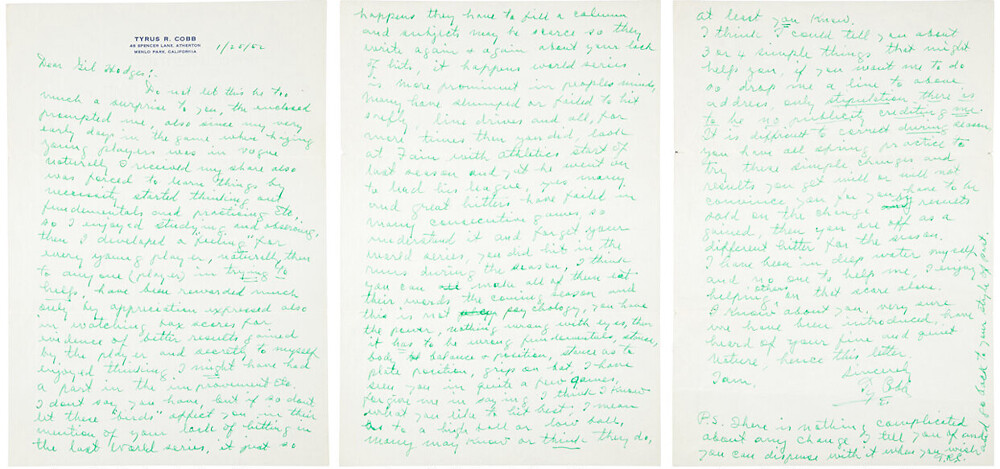 TYRUS R. COBB
48 SPENCER LANE, ATHERTON
MENLO PARK, CALIFORNIA
1/25/52
Dear Gil Hodges:-
Do not let this be too
much a surprise to you, the enclosed
prompted me, also since my very
early days in the game when hazing
young players was in vogue
naturally I received my share also
was forced to learn things by
necessity started thinking out
fundamentals and practising etc,
so I enjoyed studying and observing,
then I developed a feeling "for
every young player, naturally, then
to anyone (player) in trying to
help, have been rewarded much
only by appreciation expressed also
in watching box scores for
evidence of better results gained
by the player and secretly to myself
enjoyed thinking I might have had
a part in the improvement etc.
I don't say you have, but if so don't
let those "birds" affect you in their
mention of your lack of hitting in
the last World series, it just so
happens they have to fill a column
and subjects may be scarce so they
write again & again about your lack
of hits, it happens world series
is more prominent in peoples minds,
many have slumped or failed to hit
safely, line drives and all, far
more times then you did, look
at Fain with athletics start of
last season and yet he went on
to lead his league, yes many
and great hitters have failed in
many consecutive games, so
understand it and forget your
world series, you did hit in the
runs during the season, I think
you can make all of them eat
their words the coming season and
this is not psychology, you have
the power, nothing wrong with eyes, then
it has to be wrong fundamentals, stance,
body balance & position, stance as to
plate position, grips on bat, I have
seen you in quite a few games,
forgive me in saying I think I know
what you like to hit best, I mean
as to a high ball or low ball,
many may know or think they do,
at least you know.
I think I could tell you about
3 or 4 simple things that might
help you, if you want me to do
so drop me a line to above
address, only stipulation there is
to be no publicity crediting me.
It is difficult to correct during season
you have all spring practice to
try these simple changes and
results you get will or will not
convince you for you have to be
sold on the change results
gained, then you are off as a
different hitter for the season.
I have been in deep water myself
and no one to help me, I enjoy
helping others on that score alone.
I know about you, very sure
we have been introduced, have
heard of your fine and quiet
nature, hence this letter.
I am, Sincerely
Ty Cobb
P.S. There is nothing complicated
about any change I tell you of and
you can dispense with it when you wish
& go back to your style of past.
T.R.C.